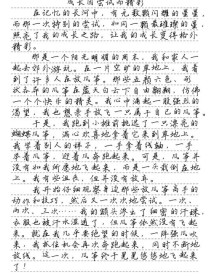 成长因尝试而精彩
在记忆的长河中，有无数颗闪耀的星星，
而那一次特别的尝试，如同一颗最璀璨的星，照
亮了我的成长之路，让我的成长变得格外
精彩。
那是一个阳光明媚的周末，我和家人一
起去郊外游玩。在一片空旷的草地上，我看
到了许多人在放风筝。那些五颜六色、形
状各异的风筝在蓝天白云下自由翱翔，仿佛
一个个快乐的精灵。我心中涌起一股强烈的
渴望，我也想亲手放飞一只属于自己的风筝。
于是，我跑到小摊前挑选了一只漂亮的
蝴蝶风筝，满心欢喜地拿着它来到草地上。
我学着别人的样子，一手拿着线轴，一手
举着风筝，迎着风奔跑起来。可是，风筝并
没有如我所愿地飞起来，而是一头栽倒在地
上。我有些沮丧，但并没有放弃。
我开始仔细观察身边那些放风筝高手的
动作和技巧，然后又一次次地尝试。一次、
两次、三次……我的额头渗出了细密的汗珠，
衣服也被汗水湿透了，但风筝依然没有飞起
来。就在我几乎要绝望的时候，一阵强风吹
来，我抓住机会再次奔跑起来，同时不断地放
线。这一次，风筝终于晃晃悠悠地飞起来
了！